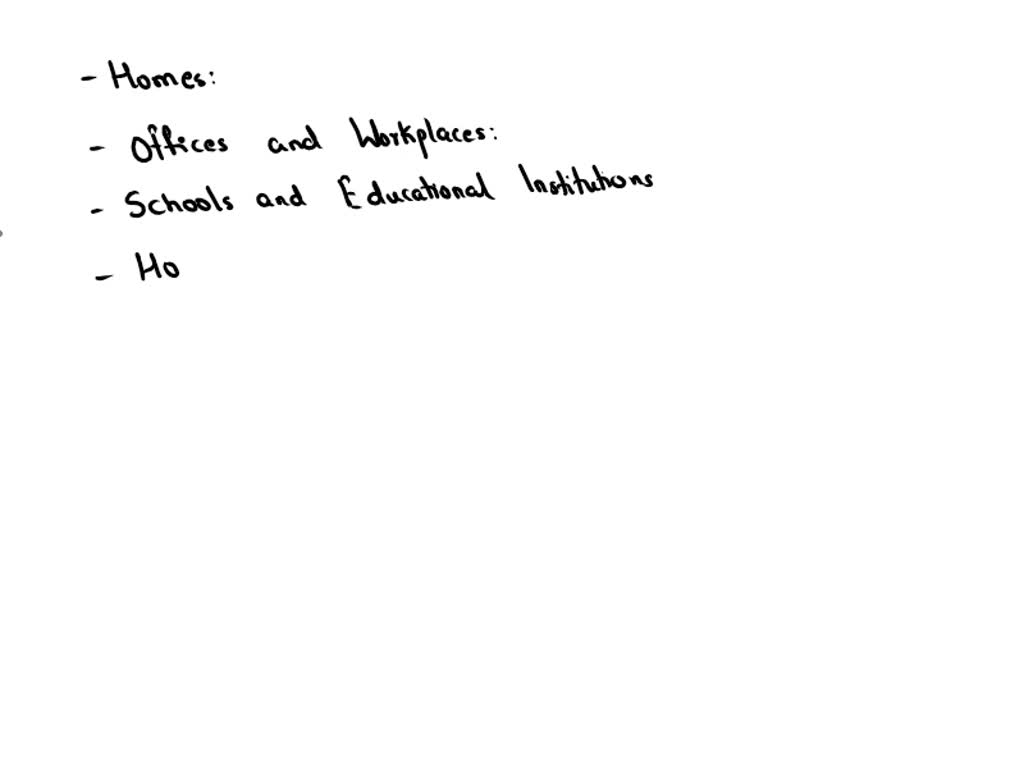 - Homes:
- Offices and Workplaces:
- Schools and Educational Institutions
- Ho